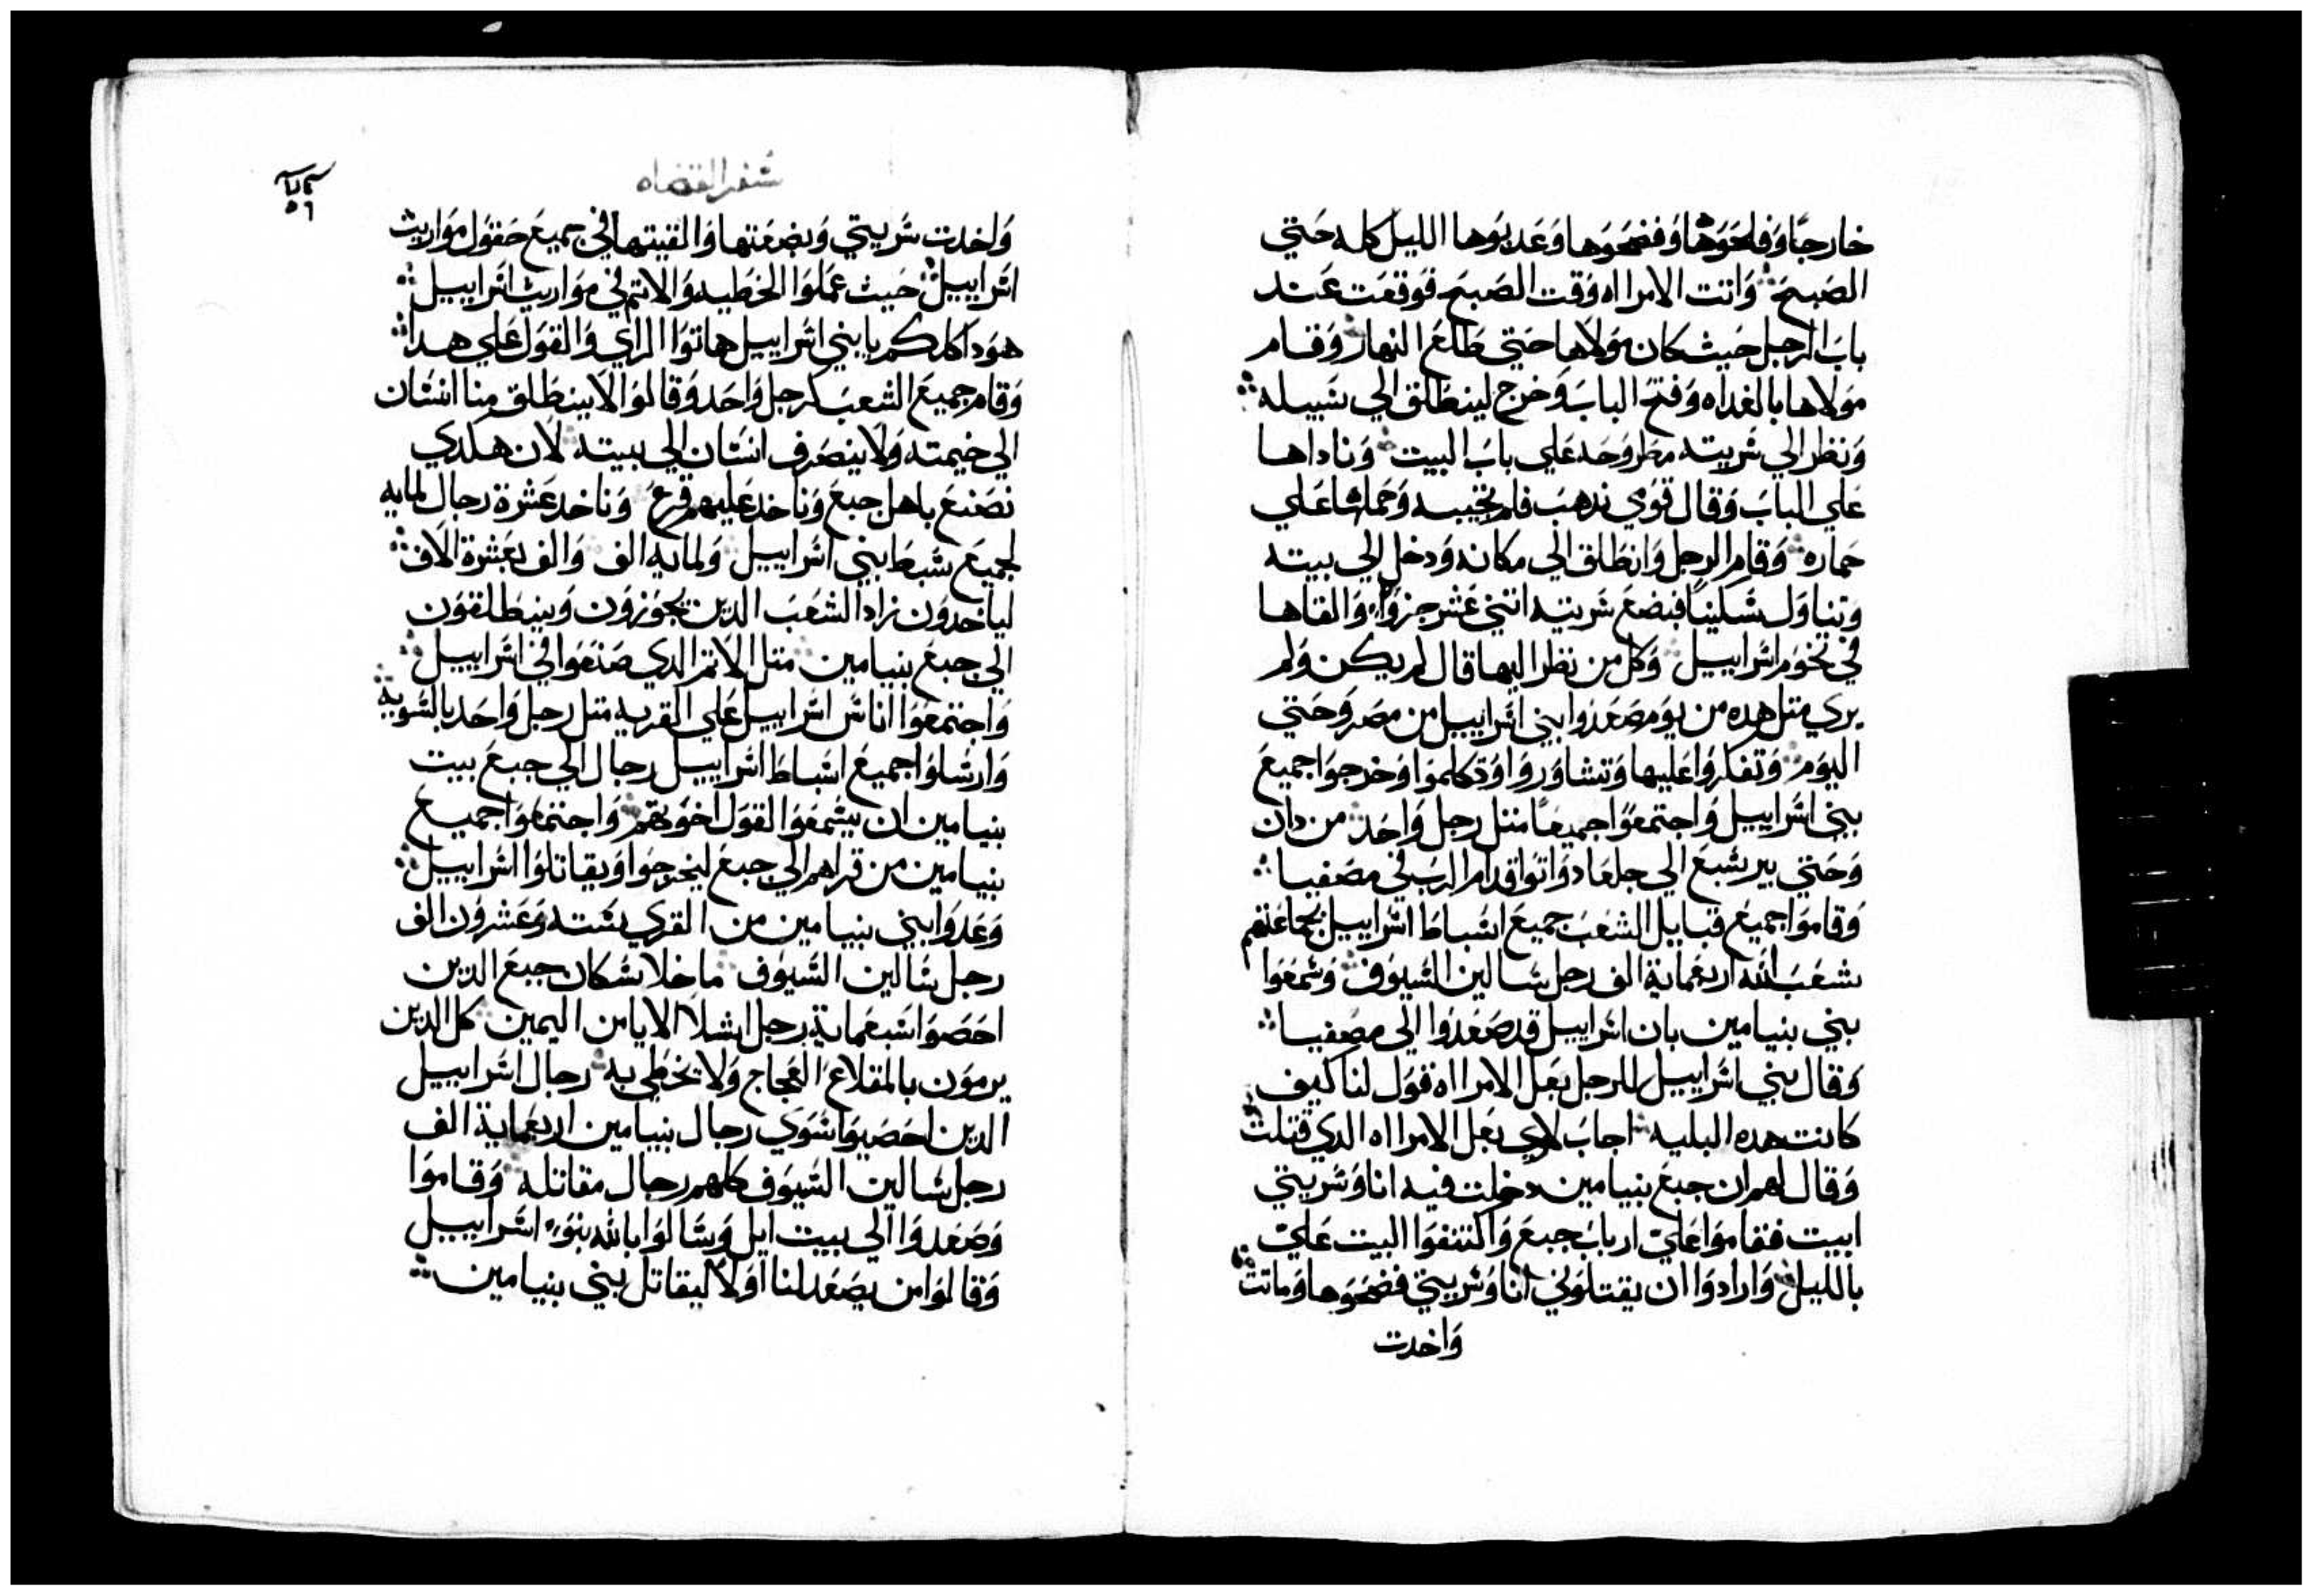 خارجًا وَفلحَوها وَفضحَوَها وَعَدبوَها الليل كله حَتي
الصَبحَ وَاتت الامرااه وَقت الصَبحَ فوَقعَت عَند
بابَ الرجل حَيث كان مَوَلاها حَتي طَلعَ النهار وَقام
مَوَلاها بالغداه وَفتحَ البابَ وَخرج لينطَلق الي سَبيله
وَنظر الي سَريته مطَروَحَه عَلي بابَ البيت وَناداها
عَلي البابَ وَقال قوَمي ندهبَ فلم تجيبه وَحَملها عَلي
حَماره وَقام الرجل وَانطَلق الي مكانه وَدخل الي بيته
وَتناوَل سَكينًا فبضعَ سَريته اتني عَشر جزوًا وَالقاها
في تخوَم اسَراييل وَكل من نظر اليها قال لم يكن وَلم
يري متل هده من يوَم صَعَدوا بني اسَراييل من مصَر وَحَتي
اليوَم وَتفكروَا عَليها وَتشاوَروَا وَتكلموَا وَخرجوَا جميعَ
بني اسَراييل وَاجتمعَوَا جميعَا متل رجل وَاحَد من دان
وَحَتي بير سَبعَ الي جلعَاد وَاتوَا قدام الربَ في مصَفيا
وَقاموَا جميعَ قبايل الشعَبَ جميعَ اسَباطَ اسَراييل بجماعَتهم
شعَبَ الله اربعَماية الف رجل سَالين السَيوَف وَسَمعَوَا
بني بنيامين بان اسَراييل قد صَعَدوَا الي مصَفيا
وَقال بني اسَراييل للرجل بعَل الامرااه قوَل لنا كيف
كانت هده البليه اجابَ لاوَي بعَل الامرااه الدي قتلت
وَقال لهم ان جبعَ بنيامين دخلت فيه انا وَسَريتي
ابيت فقاموَا عَليّ اربابَ جبعَ وَاكتنفوَا البيت عَليّ
بالليل وَارادوَا ان يقتلوَني انا وَسَريتي فضحَوَها وَماتت
وَاخدت
سَفر القضاه
٥٦
وَاخدت سَريتي وَبضعَتها وَالقيتها في جميعَ حَقوَل موَاريث
اسَراييل حَيث عَملوَا الخطَيه وَالاتم في موَاريث اسَراييل
هوَدا كلكم يا بني اسَراييل هاتوَا الراي وَالقوَل عَلي هدا
وَقام جميعَ الشعبَ كرجل وَاحَد وَقالوَا لا ينطَلق منا انسَان
الي خيمته وَلا ينصَرف انسَان الي بيته لان هكدي
نصَنعَ باهل جبعَ وَناخد عَليهم قرعَ وَناخد عَشرة رجال لمايه
لجميعَ سَبطَ بني اسَراييل وَلمايه الف وَالف بعَشرة الاف
لياخدوَن زاد الشعَبَ الدين يجوَزوَن وَينطَلقوَن
الي جبعَ بنيامين متل الاتم الدي صَنعَوَا في اسَراييل
وَاجتمعَوَا اناسَ اسَراييل عَلي القريه متل رجل وَاحَد بالسَويه
وَارسَلوَا جميعَ اسَباطَ اسَراييل رجال الي جبعَ بيت
بنيامين ان يسَمعَوَا القوَل اخوَتهم وَاجتمعَوَا جميعَ
بنيامين من قراهم الي جبعَ ليخرجوَا وَيقاتلوَا اسَراييل
وَعَدوَا بني بنيامين من القري سَته وَعَشروَن الف
رجل سَالين السَيوَف ما خلا سَكان جبعَ الدين
احَصَوَا سَبعَماية رجل اشلا الايامن اليمين كل الدين
يرموَن بالمقلاعَ العَجاج وَلا يخطَي به رجال اسَراييل
الدين احَصَيوَا سَوَي رجال بنيامين اربعَماية الف
رجل سَالين السَيوَف كلهم رجال مقاتله وَقاموَا
وَصَعَدوَا الي بيت ايل وَسَالوَا بالله بنوَ اسَراييل
وَقالوَا من يصَعَد لنا اوَلا ليقاتل بني بنيامين